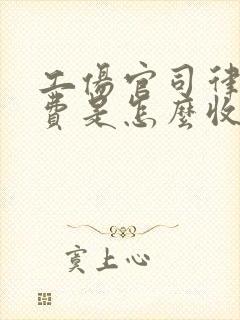 工傷官司律
費是怎麼收
寞上心